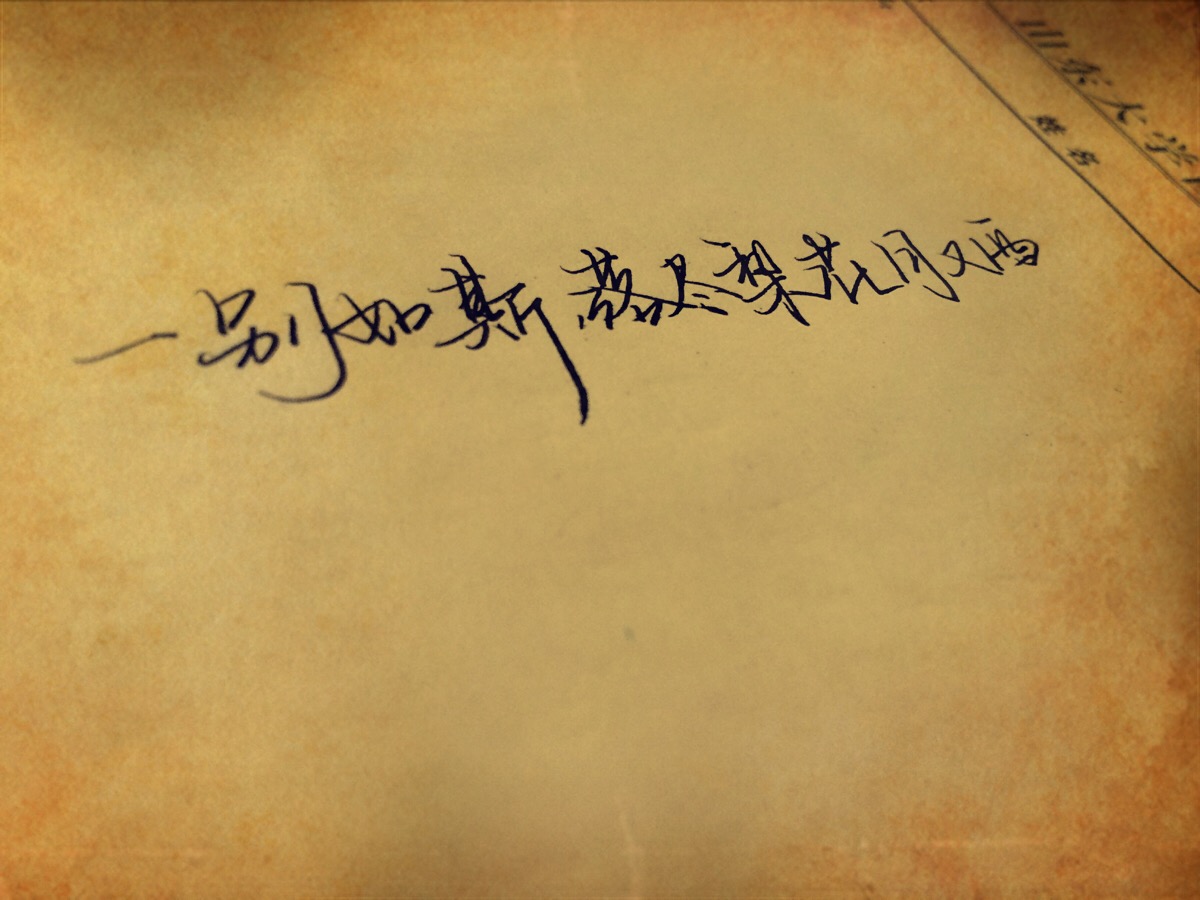 一别如斯 落尽梨花月又西
山东大学
姓名